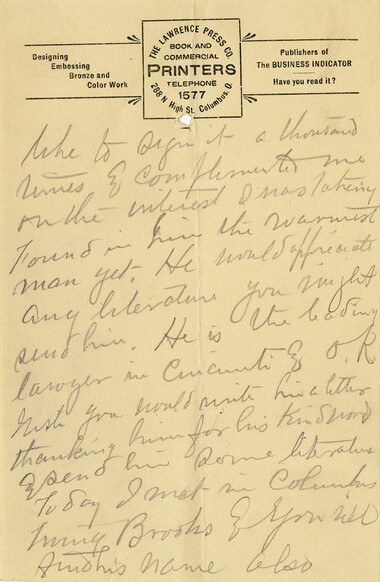 Designing
Embossing
Bronze and
Color Work
THE LAWRENCE PRESS CO.
BOOK AND
COMMERCIAL
PRINTERS
TELEPHONE
1577
288 N High St. Columbus, O.
Publishers of
The BUSINESS INDICATOR
Have you read it?
like to sign it a thousand
times & complemented me
on the interest I was taking
Found in him the warmest
man yet. He would appreciate
any literature you might
send him. He is the leading
lawyer in Cincinnti & O.K
Wish you would write him a letter
thanking him for his kind word
& send him some literature
Today I met in Columbus
Irving Brooks & you will
find his name also